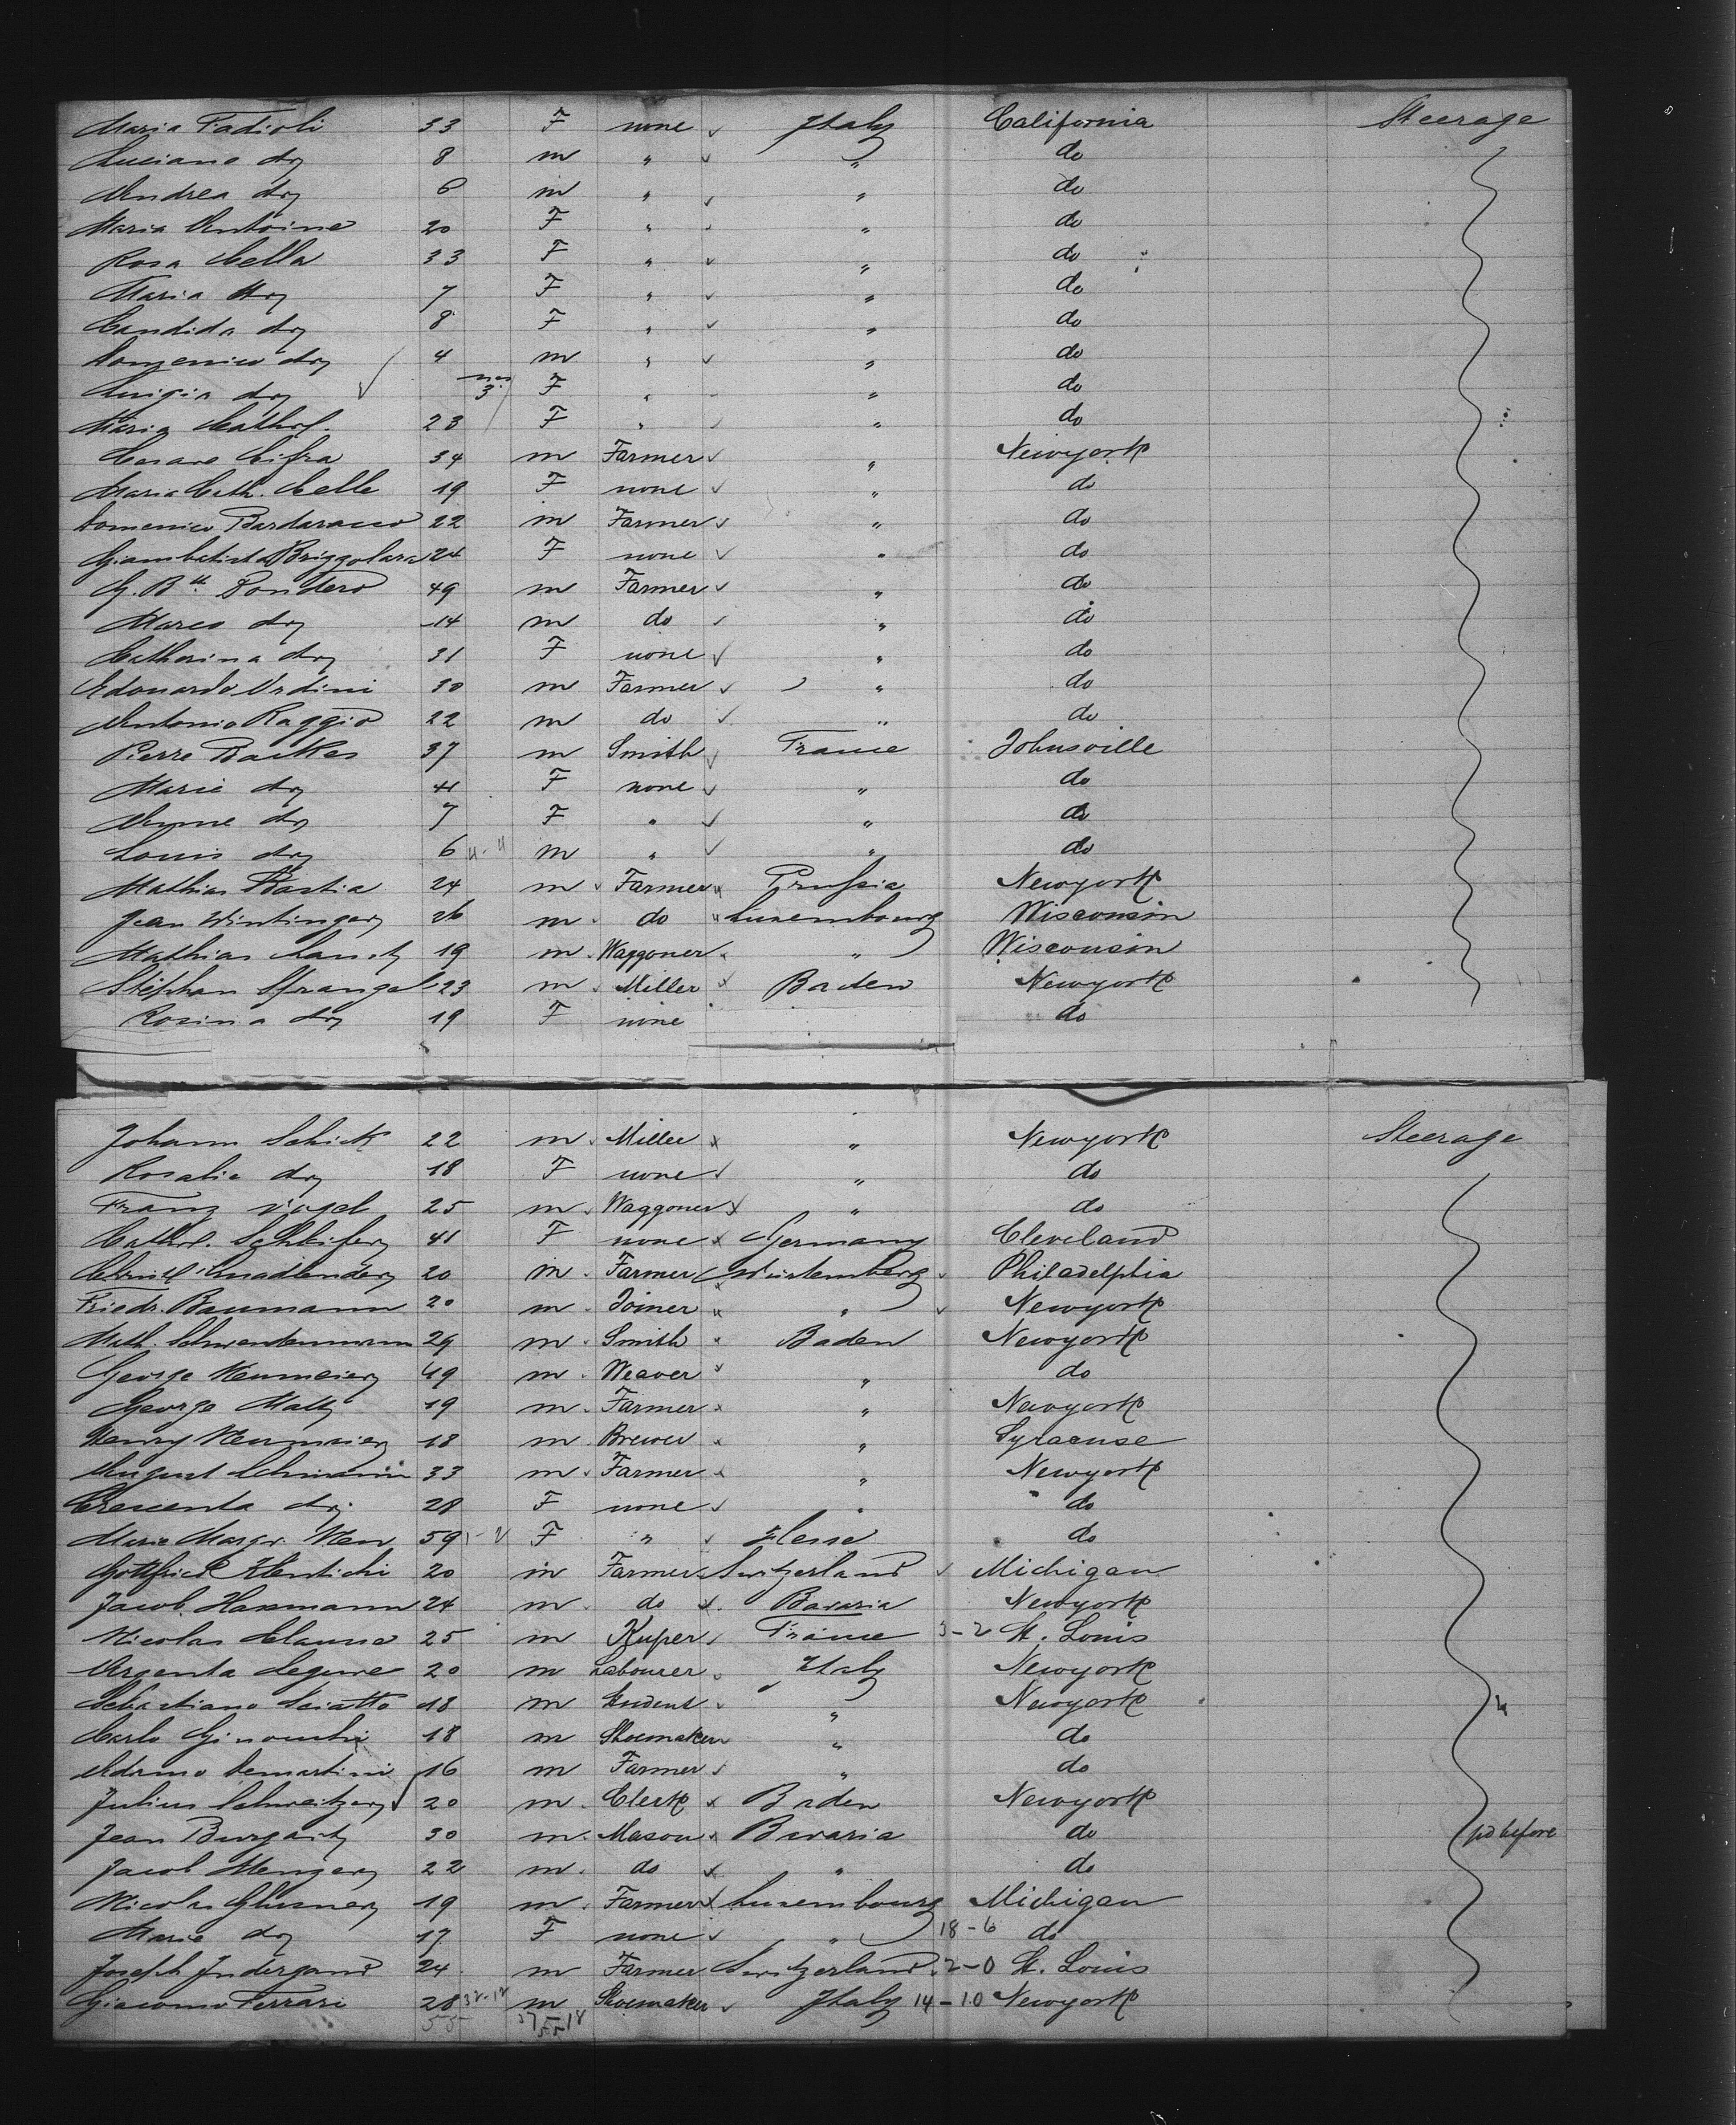 Maria Fadioli 33 F none Italy California Steerage
Luciano do 8 m " " do
Andrea do 6 m " " do
Maria Antoine 20 F " " do
Rosa Cella 33 F " " do
Maria do 7 F " " do
Candida do 8 F " " do
Domenico do 4 m " " do
Luigia do 3 mos F " " do
Maria Cathr. 23 F " " do
Cesare Cifra 34 m Farmer " Newyork
Maria Cath. Celle 19 F none " do
Domenico Bardaracco 22 m Farmer " do
Giambatista Brizzolara 24 F none " do
G. Btt. Pondero 49 m Farmer " do
Marco do 14 m do " do
Catherina do 31 F none " do
Edouardo Ardini 30 m Farmer " do
Antonio Raggio 22 m do " do
Pierre Backes 37 m Smith France Johnsville
Marie do 41 F none " do
Anne do 7 F " " do
Louis do 6 m " " do
Mathias Bastia 24 m Farmer Prussia Newyork
Jean Wintinger 26 m do Luxembourg Wisconsin
Mathias 19 m Waggoner " Wisconsin
Stéphan Sprangel 23 m Miller Baden Newyork
Rosina do 19 F none do
Johann Schick 22 m Miller " Newyork Steerage
Rosalie do 18 F none " do
Franz Vogel 25 m Waggoner " do
Cathr. 41 F none Germany Cleveland
20 m Farmer Würtemberg Philadelphia
Friedr. Baumann 20 m Joiner " Newyork
Math. Schwendenmann 29 m Smith Baden Newyork
George Neumeier 49 m Weaver " do
George Matt 19 m Farmer " Newyork
Henry Neumaier 18 m Brewer " Syracuse
August 33 m Farmer " Newyork
Crescenta do 28 F none " do
Marie Margr. 59 F " Hesse do
Gottfried 20 m Farmer Switzerland Michigan
Jacob Hammann 24 m do Bavaria Newyork
Nicolas 25 m Kuper France 3-2 St. Louis
Argenta 20 m Labourer Italy Newyork
Sebastiano Sciatto 18 m Student " Newyork
Carlo Ginocchi 18 m Shoemaker " do
Adamo Demartini 16 m Farmer " do
Julius Schweitzer 20 m Clerk Baden Newyork
Jean 30 m Mason Bavaria do pd before
Jacob Menger 22 m do " do
Nicolas 19 m Farmer Luxembourg Michigan
Marie do 17 F none " 18-6 do
Joseph Indergand 24 m Farmer Switzerland 2-0 St. Louis
Giacomo Ferrari 28 m Shoemaker Italy 14-10 Newyork
55 37 18
55